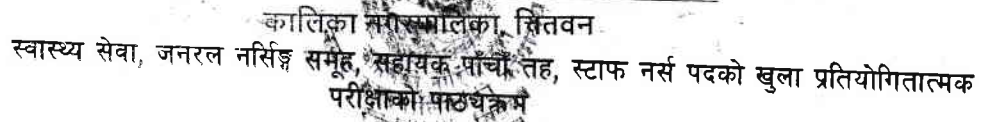 कालिका नगरपालिका, चितवन
स्वास्थ्य सेवा, जनरल नर्सिङ्ग समूह, सहायक पाँचौं तह, स्टाफ नर्स पदको खुला प्रतियोगितात्मक
परीक्षाको पाठ्यक्रम